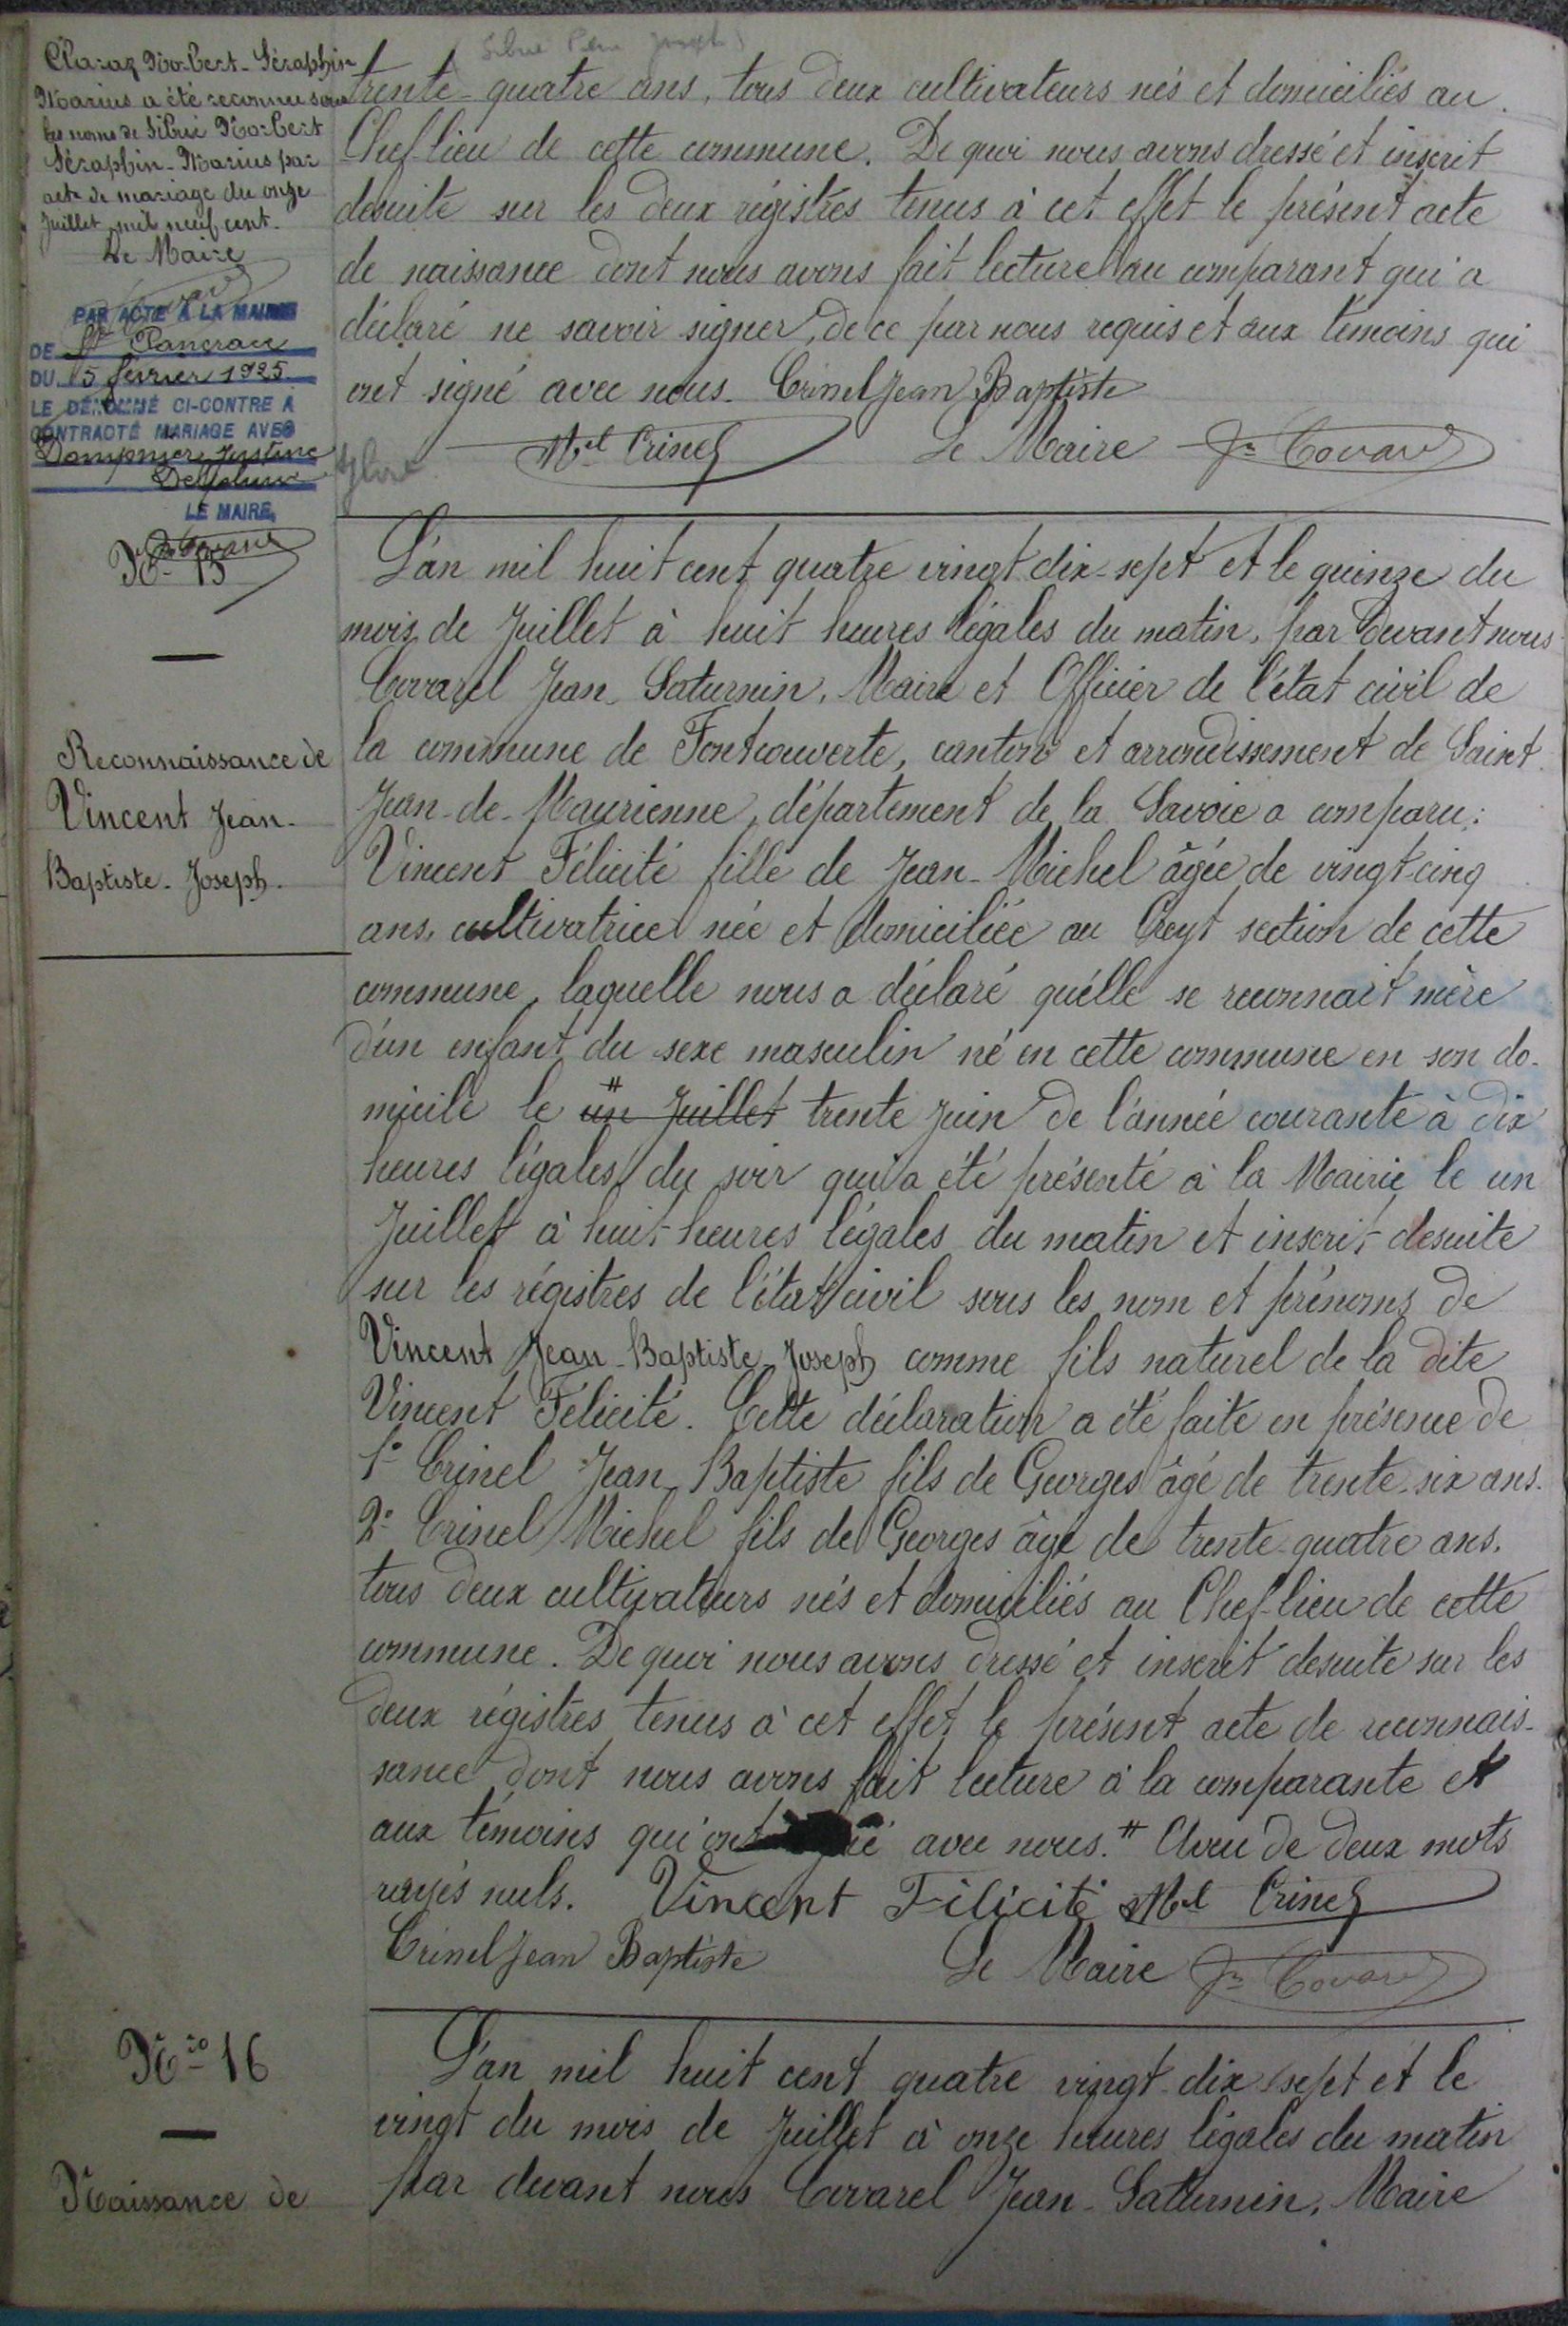 Claraz Norbert-Séraphin
Marius a été reconnu sous
les noms de Sibué Norbert
Séraphin-Marius par
acte de mariage du onze
Juillet mil neuf cent.
Le Maire
PAR ACTE À LA MAIRIE
DE St Pancrace
DU 15 février 1925
LE DÉNOMMÉ CI-CONTRE A
CONTRACTÉ MARIAGE AVEC
Dompnier Justine
Delphine
LE MAIRE,
trente-quatre ans, tous deux cultivateurs nés et domiciliés au
Chef-lieu de cette commune. De quoi nous avons dressé et inscrit
desuite sur les deux régistres tenus à cet effet le présent acte
de naissance dont nous avons fait lecture au comparant qui a
déclaré ne savoir signer, de ce par nous requis et aux témoins qui
ont signé avec nous. Crinel Jean Baptiste
Mel Crinel Le Maire Jn Covarel
No 15
Reconnaissance de
Vincent Jean-
Baptiste-Joseph.
L'an mil huit cent quatre vingt dix-sept et le quinze du
mois de Juillet à huit heures légales du matin, par devant nous
Covarel Jean-Saturnin, Maire et Officier de l'état civil de
la commune de Fontcouverte, canton et arrondissement de Saint
Jean-de-Maurienne, département de la Savoie a comparu:
Vincent Félicité fille de Jean-Michel âgée de vingt-cinq
ans, cultivatrice née et domiciliée au Creyt section de cette
commune, laquelle nous a déclaré qu'elle se reconnait mère
d'un enfant du sexe masculin né en cette commune en son do-
micile le # un Juillet trente Juin de l'année courante à dix
heures légales du soir qui a été présenté à la Mairie le un
Juillet à huit heures légales du matin et inscrit desuite
sur les régistres de l'état civil sous les nom et prénoms de
Vincent Jean-Baptiste-Joseph comme fils naturel de la dite
Vincent Félicité. Cette déclaration a été faite en présence de
1° Crinel Jean Baptiste fils de Georges âgé de trente-six ans.
2° Crinel Michel fils de Georges âgé de trente-quatre ans.
tous deux cultivateurs nés et domiciliés au Chef-lieu de cette
commune. De quoi nous avons dressé et inscrit desuite sur les
deux régistres tenus à cet effet le présent acte de reconnais-
sance dont nous avons fait lecture à la comparante et
aux témoins qui ont signé avec nous. # Aveu de deux mots
rayés nuls. Vincent Félicité Mel Crinel
Crinel Jean Baptiste Le Maire Jn Covarel
Nro 16
Naissance de
L'an mil huit cent quatre vingt-dix sept et le
vingt du mois de Juillet à onze heures légales du matin
par devant nous Covarel Jean-Saturnin, Maire